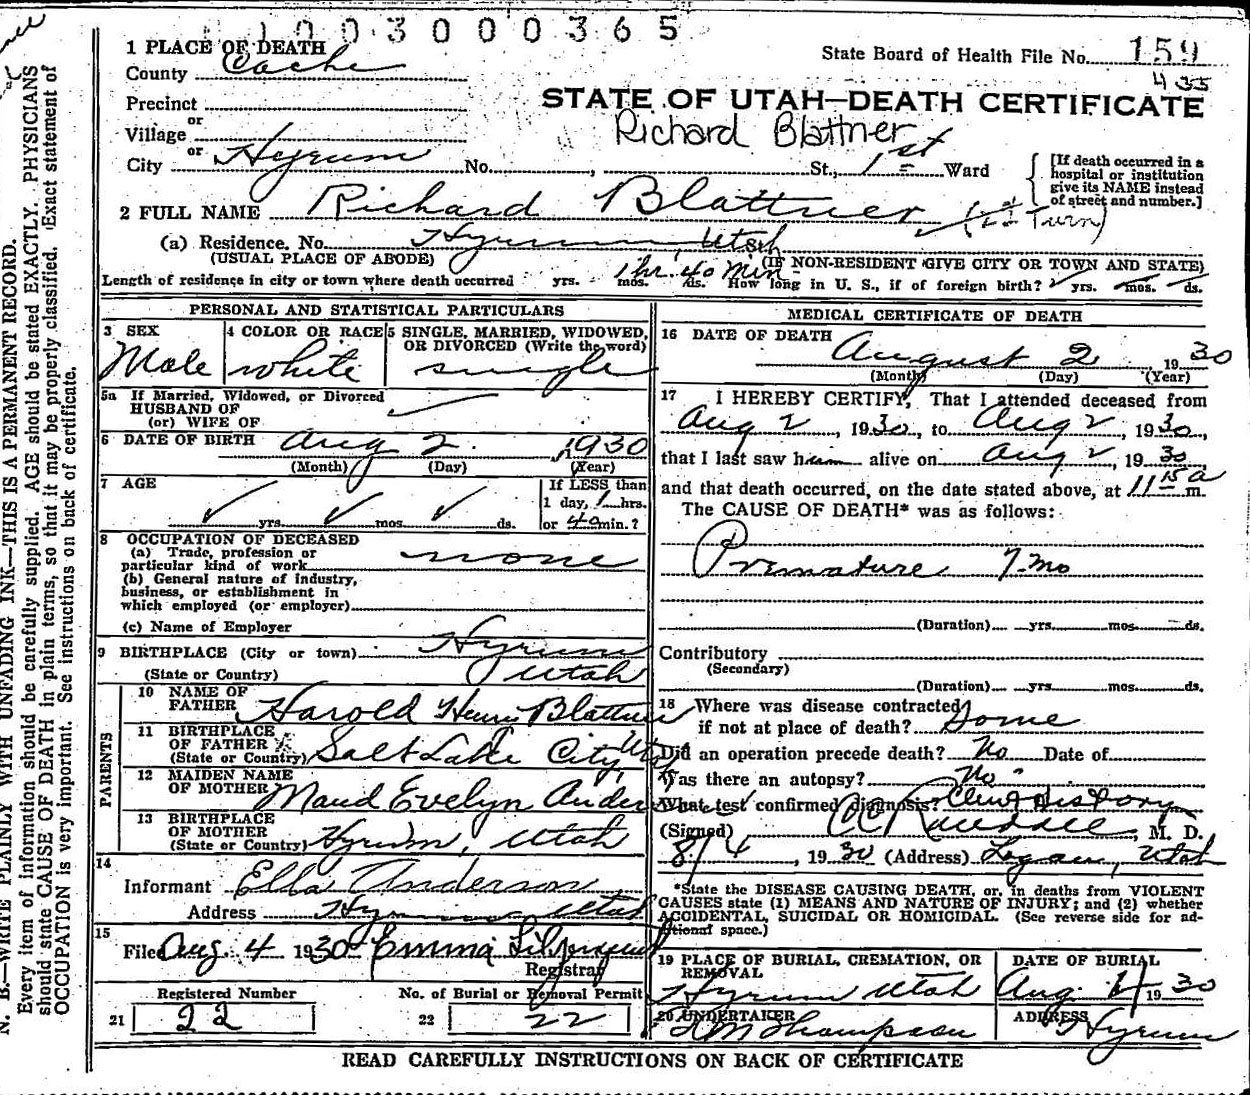 1003000365
1 PLACE OF DEATH
State Board of Health File No. 159
435
County Cache
STATE OF UTAH—DEATH CERTIFICATE
Precinct
or
Village
Richard Blattner
or
City Hyrum No. , St., 1st Ward
[If death occurred in a hospital or institution give its NAME instead of street and number.]
2 FULL NAME Richard Blattner (1st Twin)
(a) Residence. No. Hyrum, Utah St.
(USUAL PLACE OF ABODE) (IF NON-RESIDENT GIVE CITY OR TOWN AND STATE)
1 hr. 40 Min
Length of residence in city or town where death occurred yrs. mos. ds. How long in U. S., if of foreign birth? yrs. mos. ds.
PERSONAL AND STATISTICAL PARTICULARS
3 SEX
Male
4 COLOR OR RACE
white
5 SINGLE, MARRIED, WIDOWED,
OR DIVORCED (Write the word)
single
5a If Married, Widowed, or Divorced
HUSBAND OF
(or) WIFE OF
6 DATE OF BIRTH Aug 2. 1930
(Month) (Day) (Year)
7 AGE
yrs. mos. ds.
If LESS than
1 day, 1 hrs.
or 40 min.?
8 OCCUPATION OF DECEASED
(a) Trade, profession or
particular kind of work none
(b) General nature of industry,
business, or establishment in
which employed (or employer)
(c) Name of Employer
9 BIRTHPLACE (City or town) Hyrum
(State or Country) Utah
PARENTS
10 NAME OF
FATHER Harold Henri Blattner
11 BIRTHPLACE
OF FATHER
(State or Country) Salt Lake City, Utah
12 MAIDEN NAME
OF MOTHER Maud Evelyn Anderson
13 BIRTHPLACE
OF MOTHER
(State or Country) Hyrum, Utah
14
Informant Ella Anderson,
Address Hyrum Utah
15
Filed Aug. 4 1930 Emma
Registrar
Registered Number
21 22
No. of Burial or Removal Permit
22 22
MEDICAL CERTIFICATE OF DEATH
16 DATE OF DEATH
August 2 1930
(Month) (Day) (Year)
17 I HEREBY CERTIFY, That I attended deceased from
Aug 2, 1930, to Aug 2, 1930,
that I last saw him alive on Aug 2, 1930
and that death occurred, on the date stated above, at 11 15 a m.
The CAUSE OF DEATH* was as follows:
Premature 7-mo
(Duration) yrs. mos. ds.
Contributory
(Secondary)
(Duration) yrs. mos. ds.
18 Where was disease contracted
if not at place of death?
Did an operation precede death? No Date of
Was there an autopsy? No
What test confirmed diagnosis? History
(Signed) , M. D.
8/4, 1930 (Address) Logan, Utah
*State the DISEASE CAUSING DEATH, or, in deaths from VIOLENT
CAUSES state (1) MEANS AND NATURE OF INJURY; and (2) whether
ACCIDENTAL, SUICIDAL OR HOMICIDAL. (See reverse side for ad-
ditional space.)
19 PLACE OF BURIAL, CREMATION, OR
REMOVAL
Hyrum Utah
DATE OF BURIAL
Aug. 1930
20 UNDERTAKER
Thompson
ADDRESS
Hyrum
READ CAREFULLY INSTRUCTIONS ON BACK OF CERTIFICATE
N. B.—WRITE PLAINLY WITH UNFADING INK—THIS IS A PERMANENT RECORD.
Every item of information should be carefully supplied. AGE should be stated EXACTLY. PHYSICIANS
should state CAUSE OF DEATH in plain terms, so that it may be properly classified. Exact statement of
OCCUPATION is very important. See instructions on back of certificate.